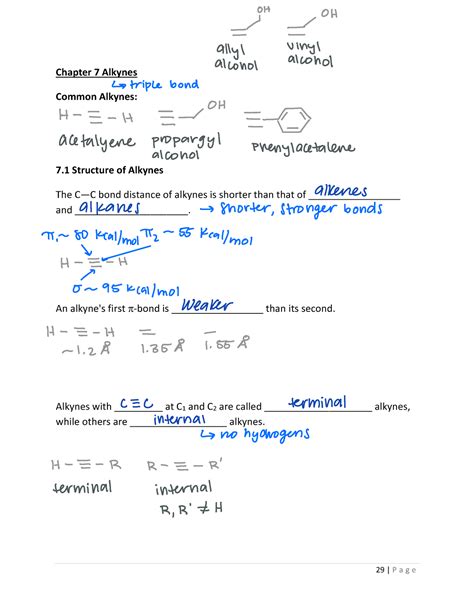 OH
OH
allyl alcohol
vinyl alcohol
Chapter 7 Alkynes
↳ triple bond
Common Alkynes:
H − ≡ − H
OH
acetalyene propargyl alconol
phenylacetalene
7.1 Structure of Alkynes
The C—C bond distance of alkynes is shorter than that of alkenes
and alkanes. → shorter, stronger bonds
π₁ ~ 80 kcal/mol π₂ ~ 55 kcal/mol
H − ≡ − H
σ ~ 95 kcal/mol
An alkyne's first π-bond is weaker than its second.
H − ≡ − H
~1.2 Å 1.35 Å 1.55 Å
Alkynes with C≡C at C₁ and C₂ are called terminal alkynes,
while others are internal alkynes.
↳ no hydrogens
H − ≡ − R R − ≡ − R'
terminal internal
R, R' ≠ H
29 | Page